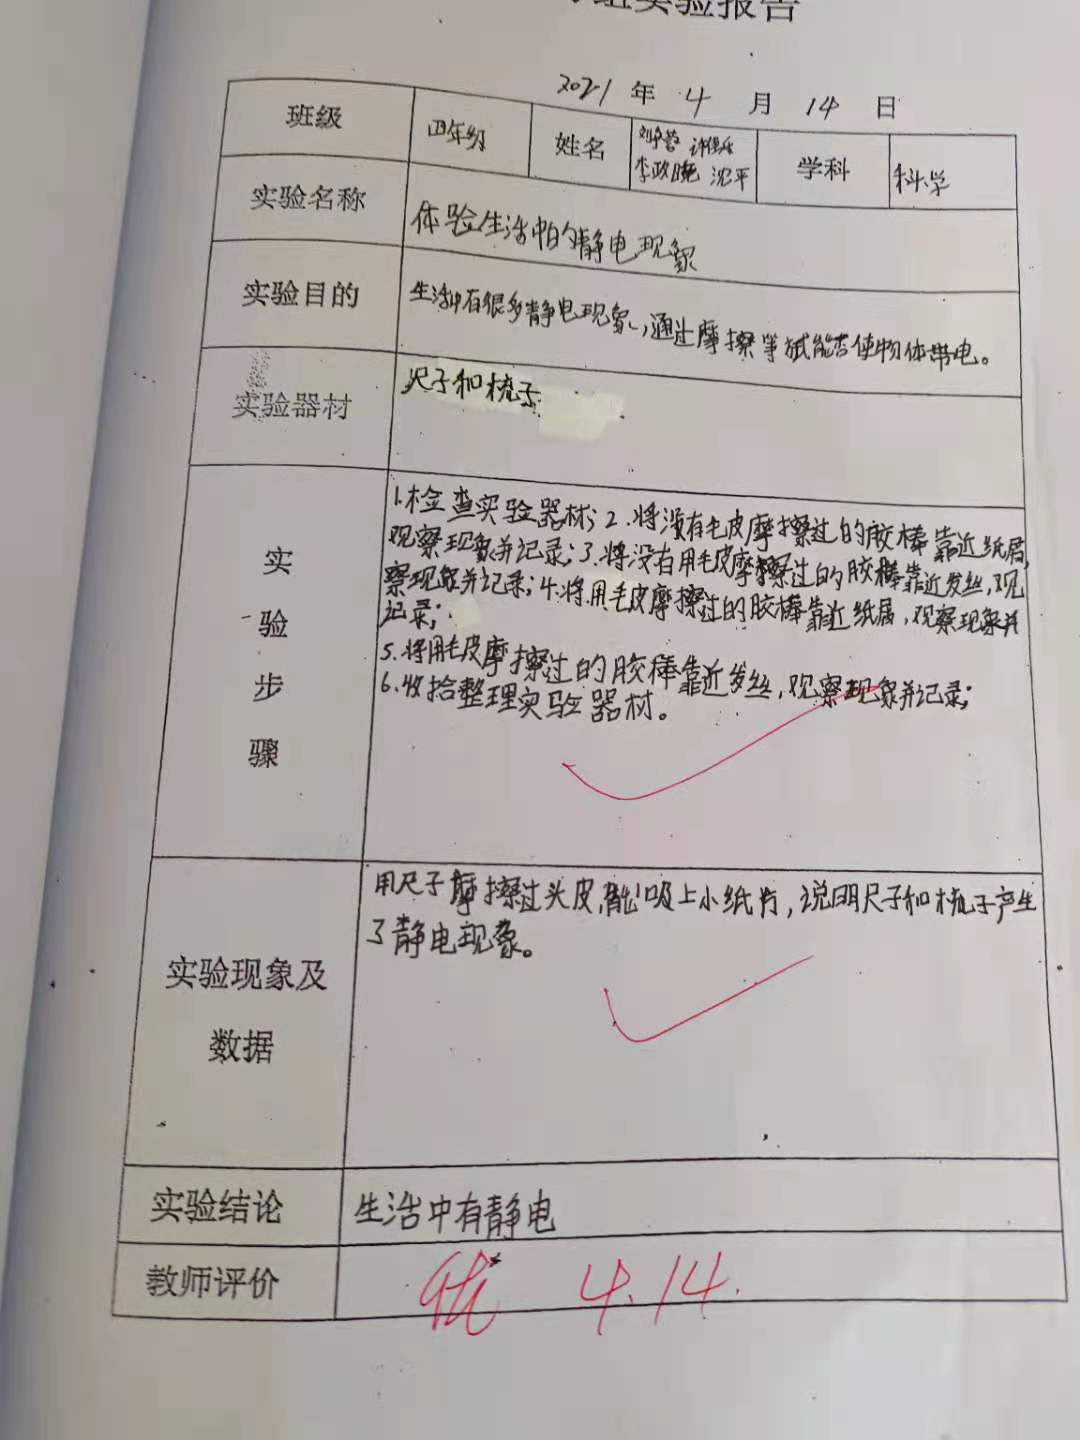 组实验报告
2021 年 4 月 14 日
班级 四年级 姓名 李政晓 沈平 学科 科学
实验名称 体验生活中的静电现象
实验目的 生活中有很多静电现象,通过摩擦等试能否使物体带电。
实验器材 尺子和梳子
实验步骤
1.检查实验器材;2.将没有毛皮摩擦过的胶棒靠近纸屑,
观察现象并记录;3.将没有用毛皮摩擦过的胶棒靠近发丝,观
察现象并记录;4.将用毛皮摩擦过的胶棒靠近纸屑,观察现象并
记录;
5.将用毛皮摩擦过的胶棒靠近发丝,观察现象并记录;
6.收拾整理实验器材。
实验现象及
数据
用尺子摩擦过头皮,能吸上小纸片,说明尺子和梳子产生
了静电现象。
实验结论 生活中有静电
教师评价 优 4.14.